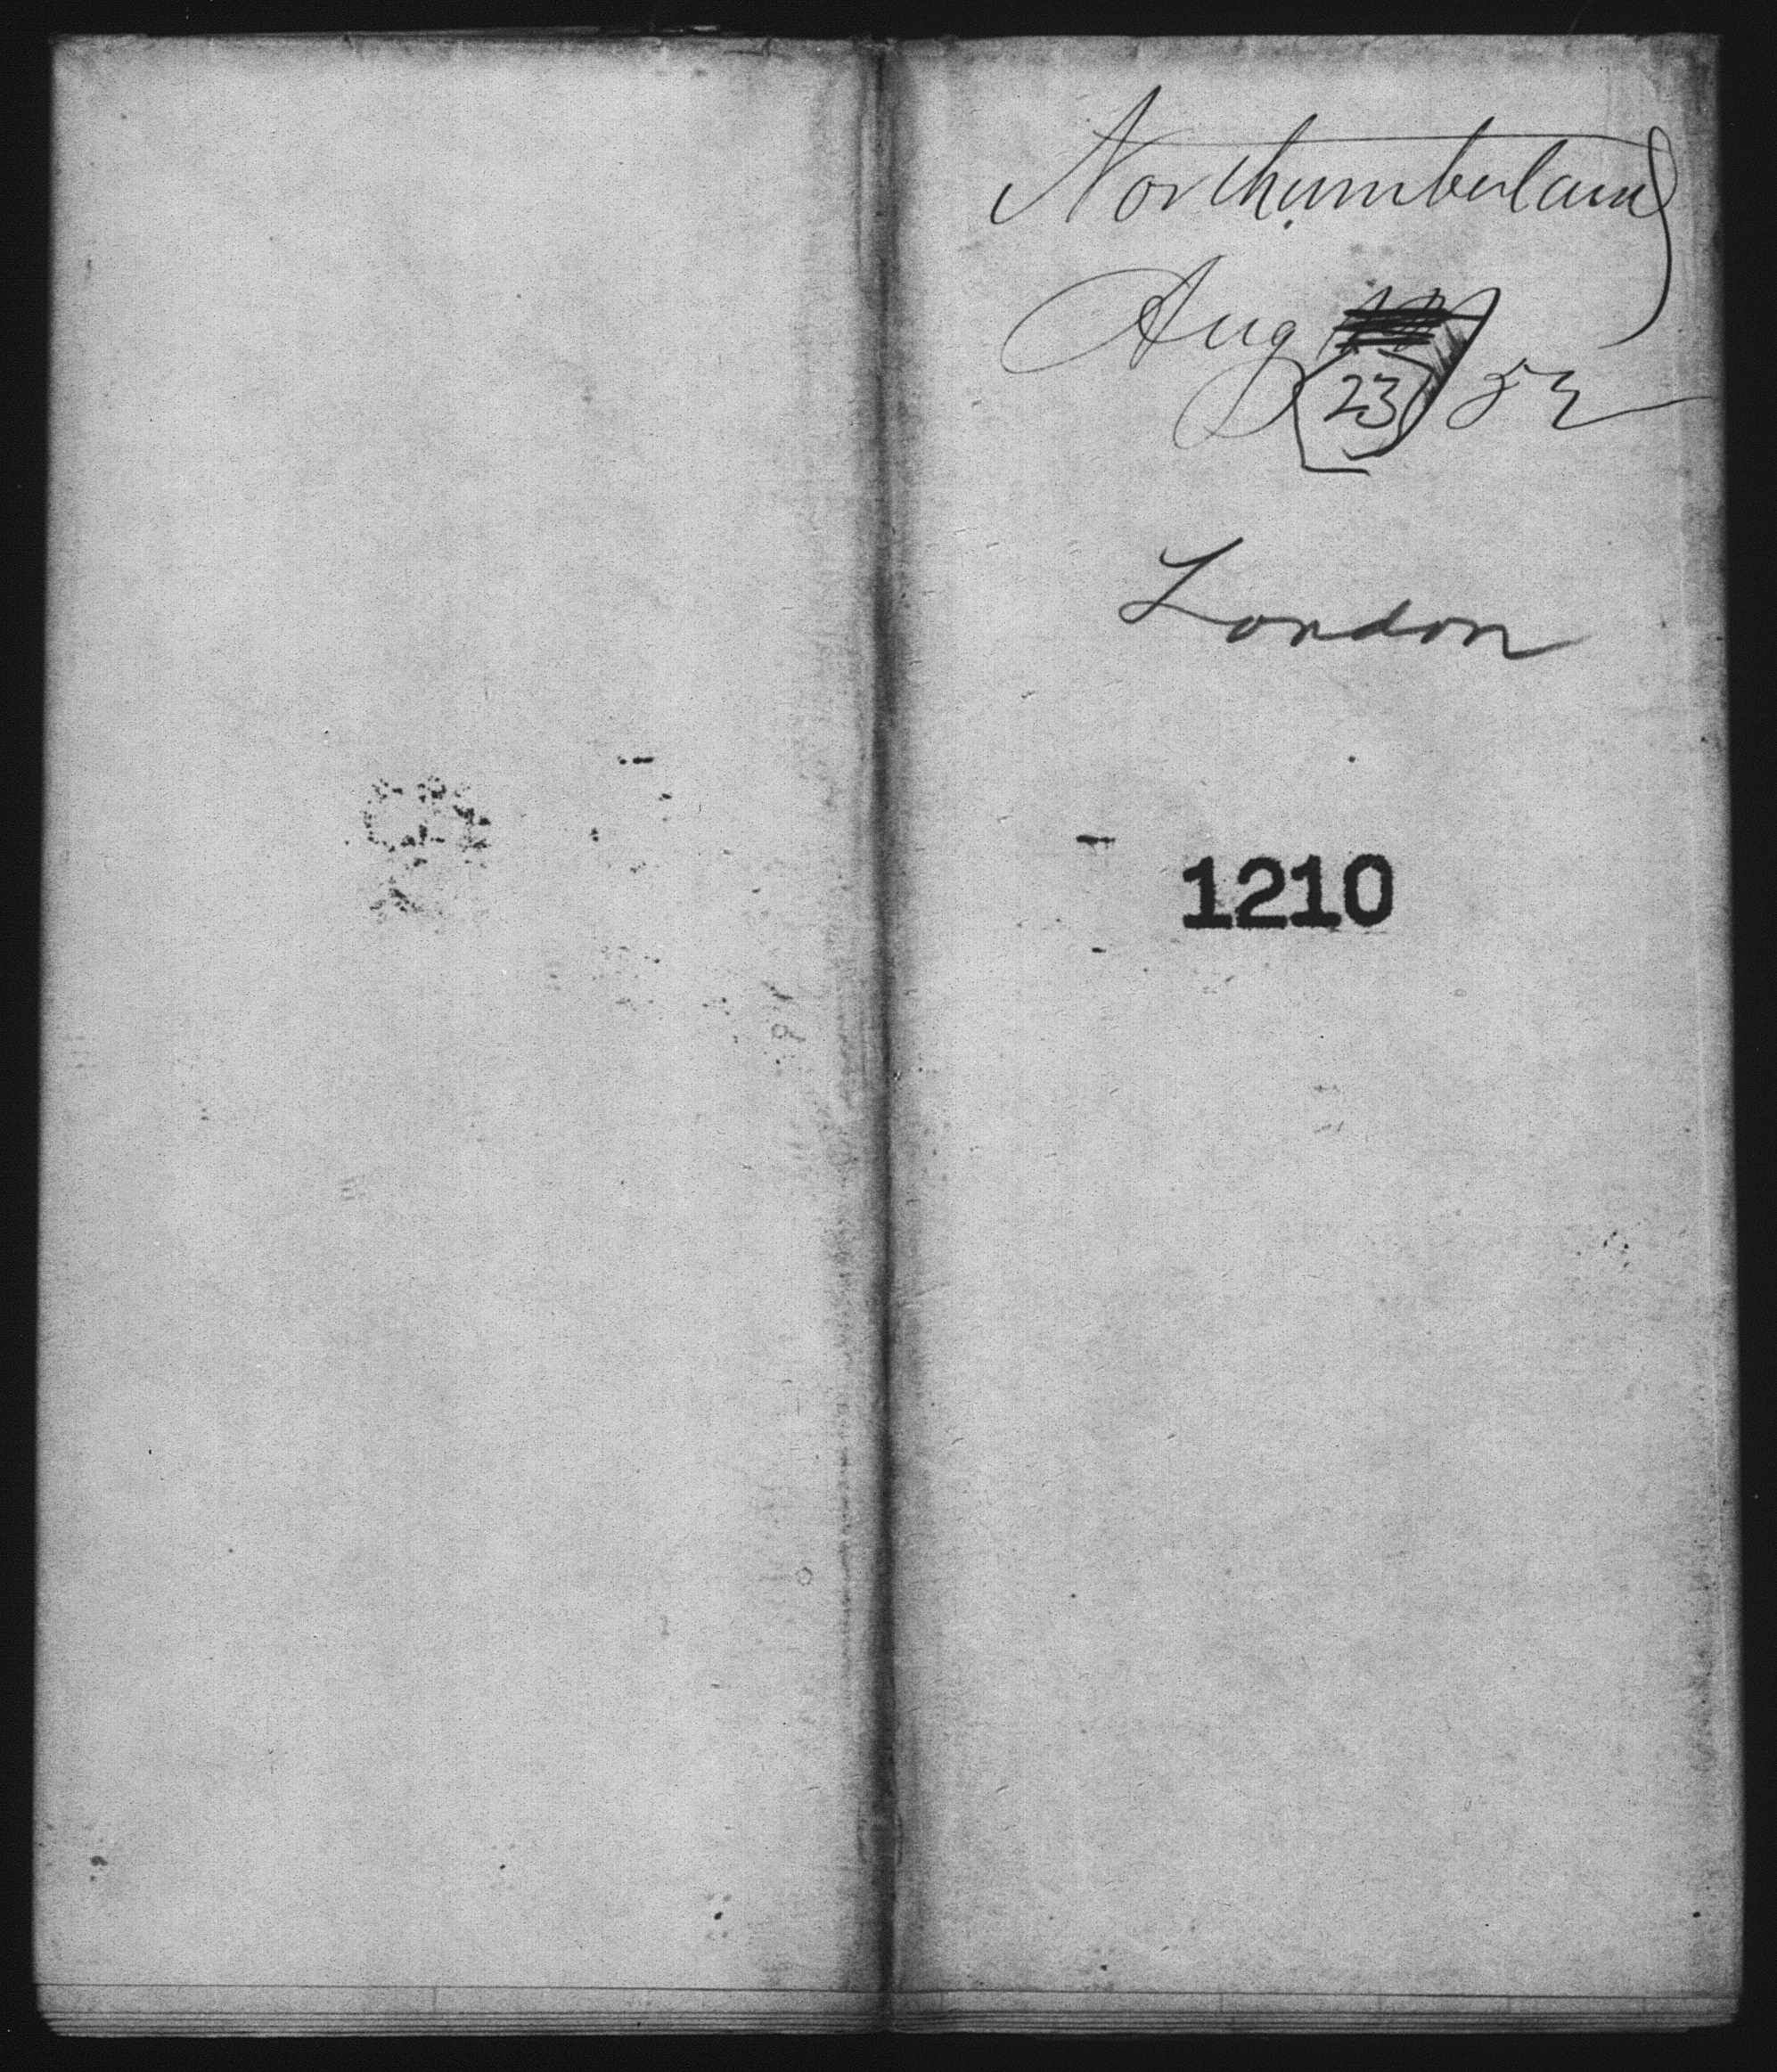 Northumberland
Aug 23/52
London
1210